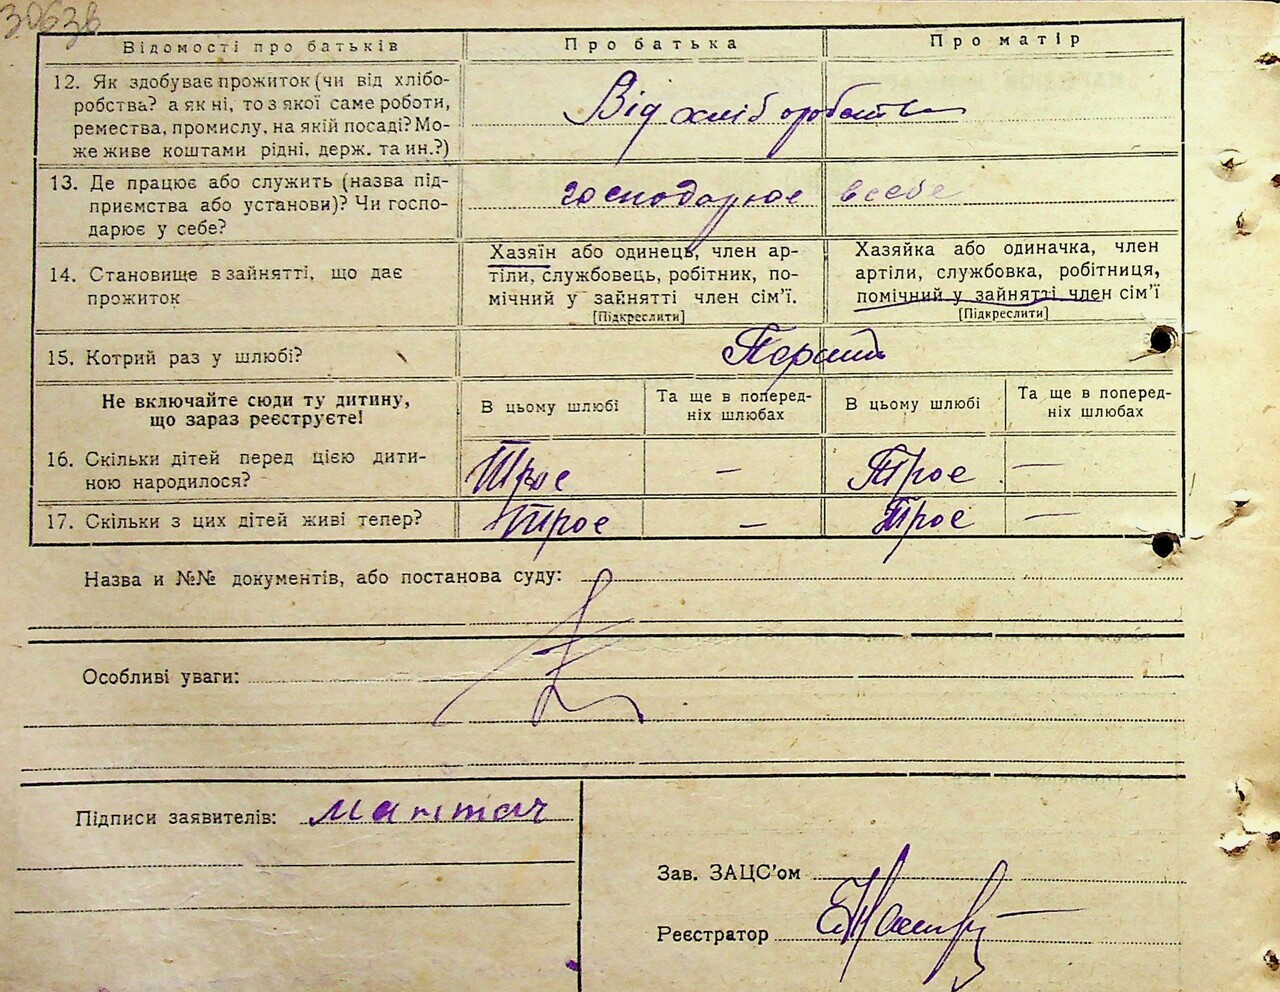 Відомості про батьків
Про батька
Про матір
12. Як здобуває прожиток (чи від хлібо-
робства? а як ні, то з якої саме роботи,
ремества, промислу, на якій посаді? Мо-
же живе коштами рідні. держ. та ин.?)
Від хліборобства
13. Де працює або служить (назва під-
приємства або установи)? Чи госпо-
дарює у себе?
господарює в себе
14. Становище в зайнятті, що дає
прожиток
Хазяїн або одинець, член ар-
тіли, службовець, робітник, по-
мічний у зайнятті член сім'ї.
[Підкреслити]
Хазяйка або одиначка, член
артіли, службовка, робітниця,
помічний у зайнятті член сім'ї
[Підкреслити]
15. Котрий раз у шлюбі?
Не включайте сюди ту дитину,
що зараз реєструєте!
В цьому шлюбі
Та ще в поперед-
ніх шлюбах
В цьому шлюбі
Та ще в поперед-
ніх шлюбах
16. Скільки дітей перед цією дити-
ною народилося?
Троє — Троє —
17. Скільки з цих дітей живі тепер?
Троє — Троє —
Назва и №№ документів, або постанова суду:
Особливі уваги:
Підписи заявителів:
Зав. ЗАЦС'ом
Реєстратор